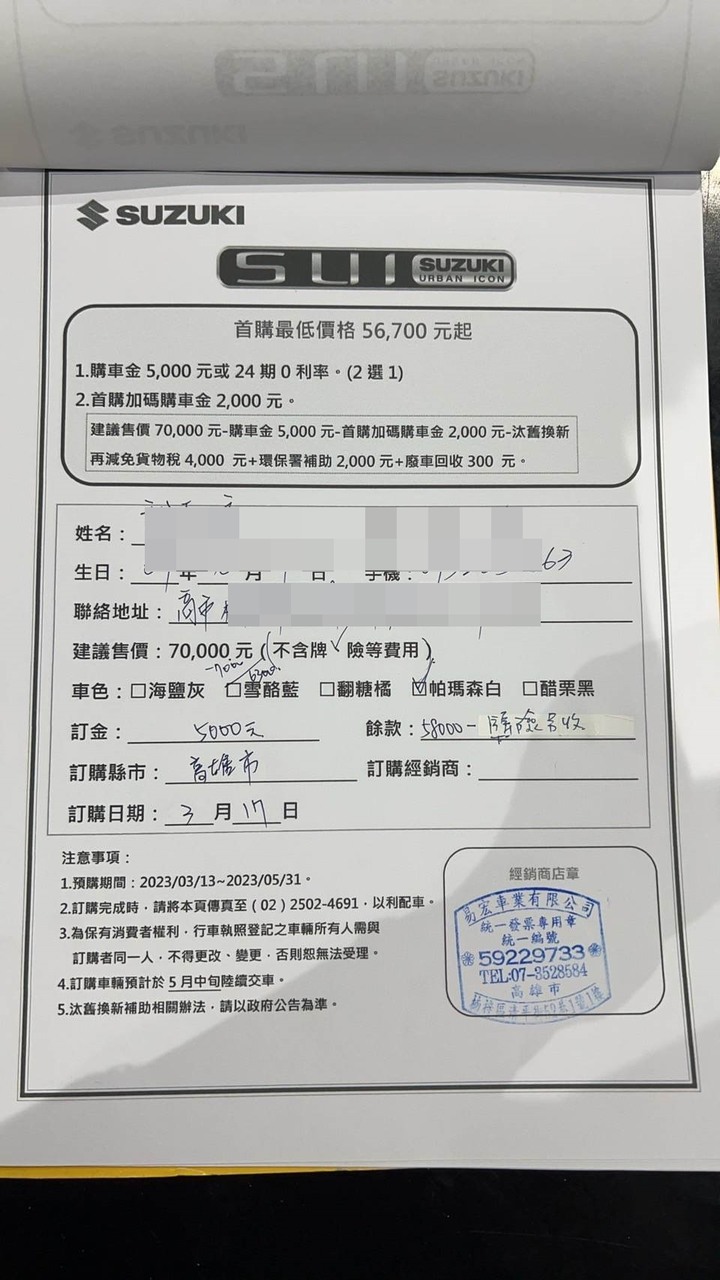 SUZUKI
SUI SUZUKI URBAN ICON
首購最低價格 56,700 元起
1.購車金 5,000 元或 24 期 0 利率。(2 選 1)
2.首購加碼購車金 2,000 元。
建議售價 70,000 元-購車金 5,000 元-首購加碼購車金 2,000 元-汰舊換新
再減免貨物稅 4,000 元+環保署補助 2,000 元+廢車回收 300 元。
姓名：
生日： 年 月 日 手機： 63
聯絡地址： 高市
建議售價：70,000 元 (不含牌險等費用)
-7000 63000
車色：□海鹽灰 □雪酪藍 □翻糖橘 ☑帕瑪森白 □醋栗黑
訂金： 5000元 餘款：58000- 牌險另收
訂購縣市： 高雄市 訂購經銷商：
訂購日期： 3 月 17 日
注意事項：
1.預購期間：2023/03/13~2023/05/31。
2.訂購完成時，請將本頁傳真至 ( 02 ) 2502-4691，以利配車。
3.為保有消費者權利，行車執照登記之車輛所有人需與
訂購者同一人，不得更改、變更，否則恕無法受理。
4.訂購車輛預計於 5 月中旬陸續交車。
5.汰舊換新補助相關辦法，請以政府公告為準。
經銷商店章
易宏車業有限公司
統一發票專用章
統一編號
59229733
TEL:07-3528584
高雄市